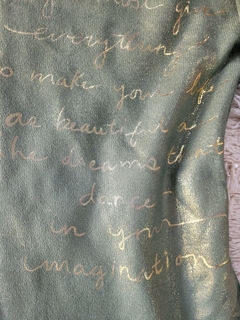 must give
everything
to make your life
as beautiful as
the dreams that
dance
in your
imagination